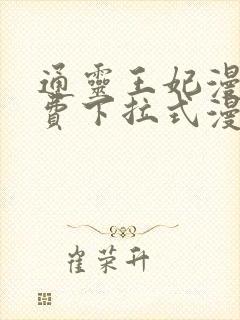 通靈王妃漫
費下拉式漫
崔荣升